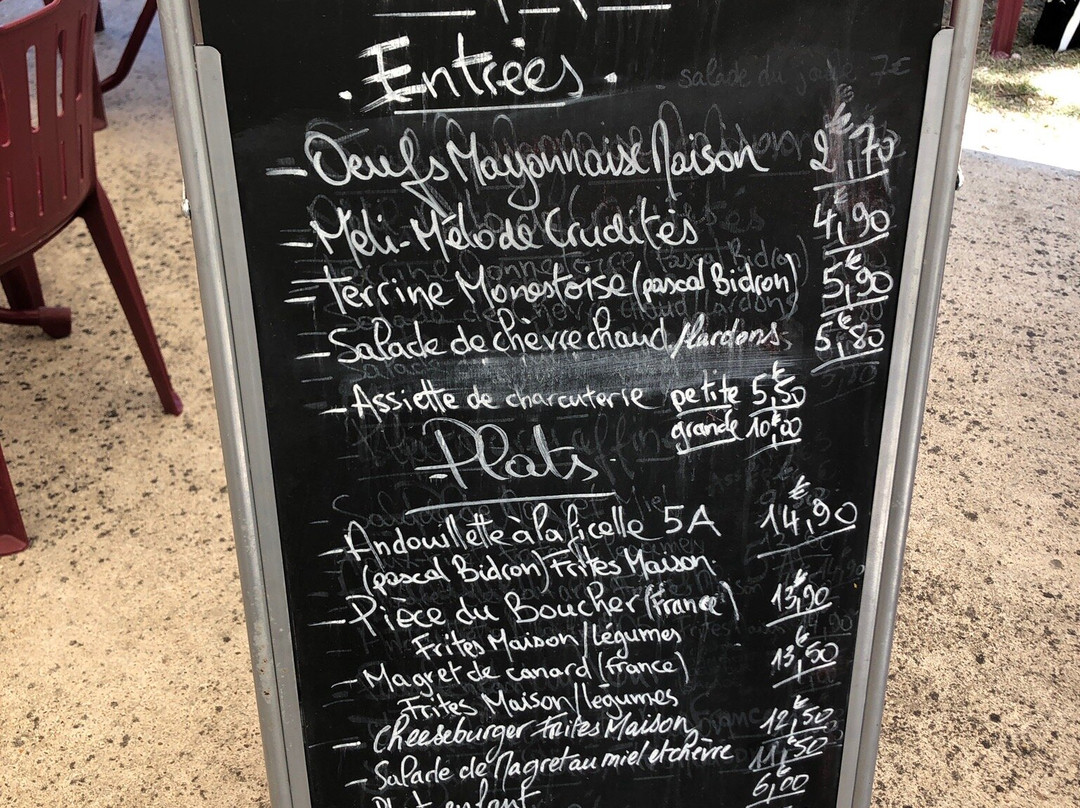 . Entrées .
salade du jour 7€
- Oeufs Mayonnaise Maison 2€,70
- Méli-Mélo de Crudités 4€,90
- Terrine Monestoise (pascal Bidron) 5€,90
- Salade de chèvre chaud/lardons 5€,80
- Assiette de charcuterie petite 5€,50
grande 10€,00
- Plats.
- Andouillette à la ficelle 5A 14€,90
(pascal Bidron) Frites Maison.
- Pièce du Boucher (France) 13€,90
Frites Maison/légumes
- Magret de canard (France) 13€,50
Frites Maison/légumes
- Cheeseburger Frites Maison 12€,50
- Salade de Magret au miel et chèvre 11€,50
Plat enfant 6€,00